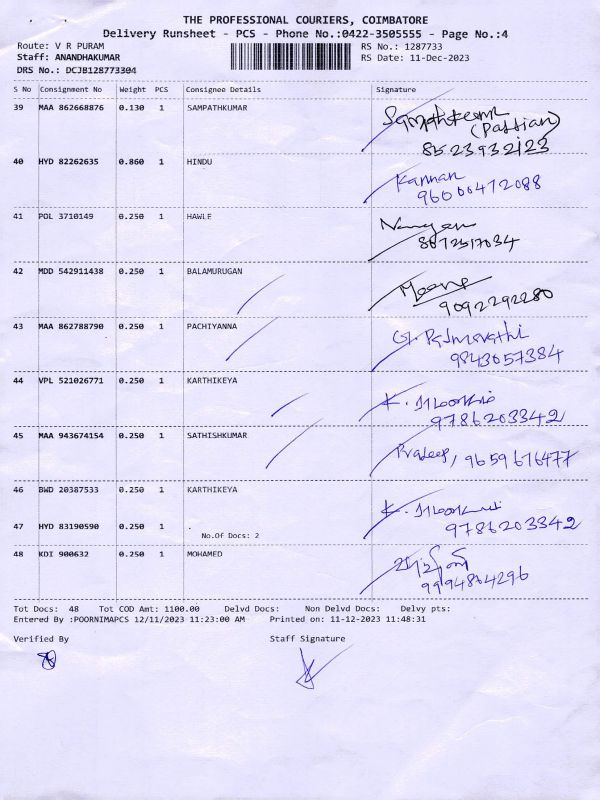 THE PROFESSIONAL COURIERS, COIMBATORE
Delivery Runsheet - PCS - Phone No.:0422-3505555 - Page No.:4
Route: V R PURAM RS No.: 1287733
Staff: ANANDHAKUMAR RS Date: 11-Dec-2023
DRS No.: DCJB128773304
S No Consignment No Weight PCS Consignee Details Signature
39 MAA 862668876 0.130 1 SAMPATHKUMAR Sampathkumar
(Passian)
8523932123
40 HYD 82262635 0.860 1 HINDU Kannan
41 POL 3710149 0.250 1 HAWLE
42 MDD 542911438 0.250 1 BALAMURUGAN
9092292280
43 MAA 862788790 0.250 1 PACHIYANNA G. Padmavathi
9843057384
44 VPL 521026771 0.250 1 KARTHIKEYA K.
9786203342
45 MAA 943674154 0.250 1 SATHISHKUMAR Pradeep, 9659676477
46 BWD 20387533 0.250 1 KARTHIKEYA K.
47 HYD 83190590 0.250 1 . 9786203342
No.Of Docs: 2
48 KDI 900632 0.250 1 MOHAMED
9994864296
Tot Docs: 48 Tot COD Amt: 1100.00 Delvd Docs: Non Delvd Docs: Delvy pts:
Entered By :POORNIMAPCS 12/11/2023 11:23:00 AM Printed on: 11-12-2023 11:48:31
Verified By Staff Signature